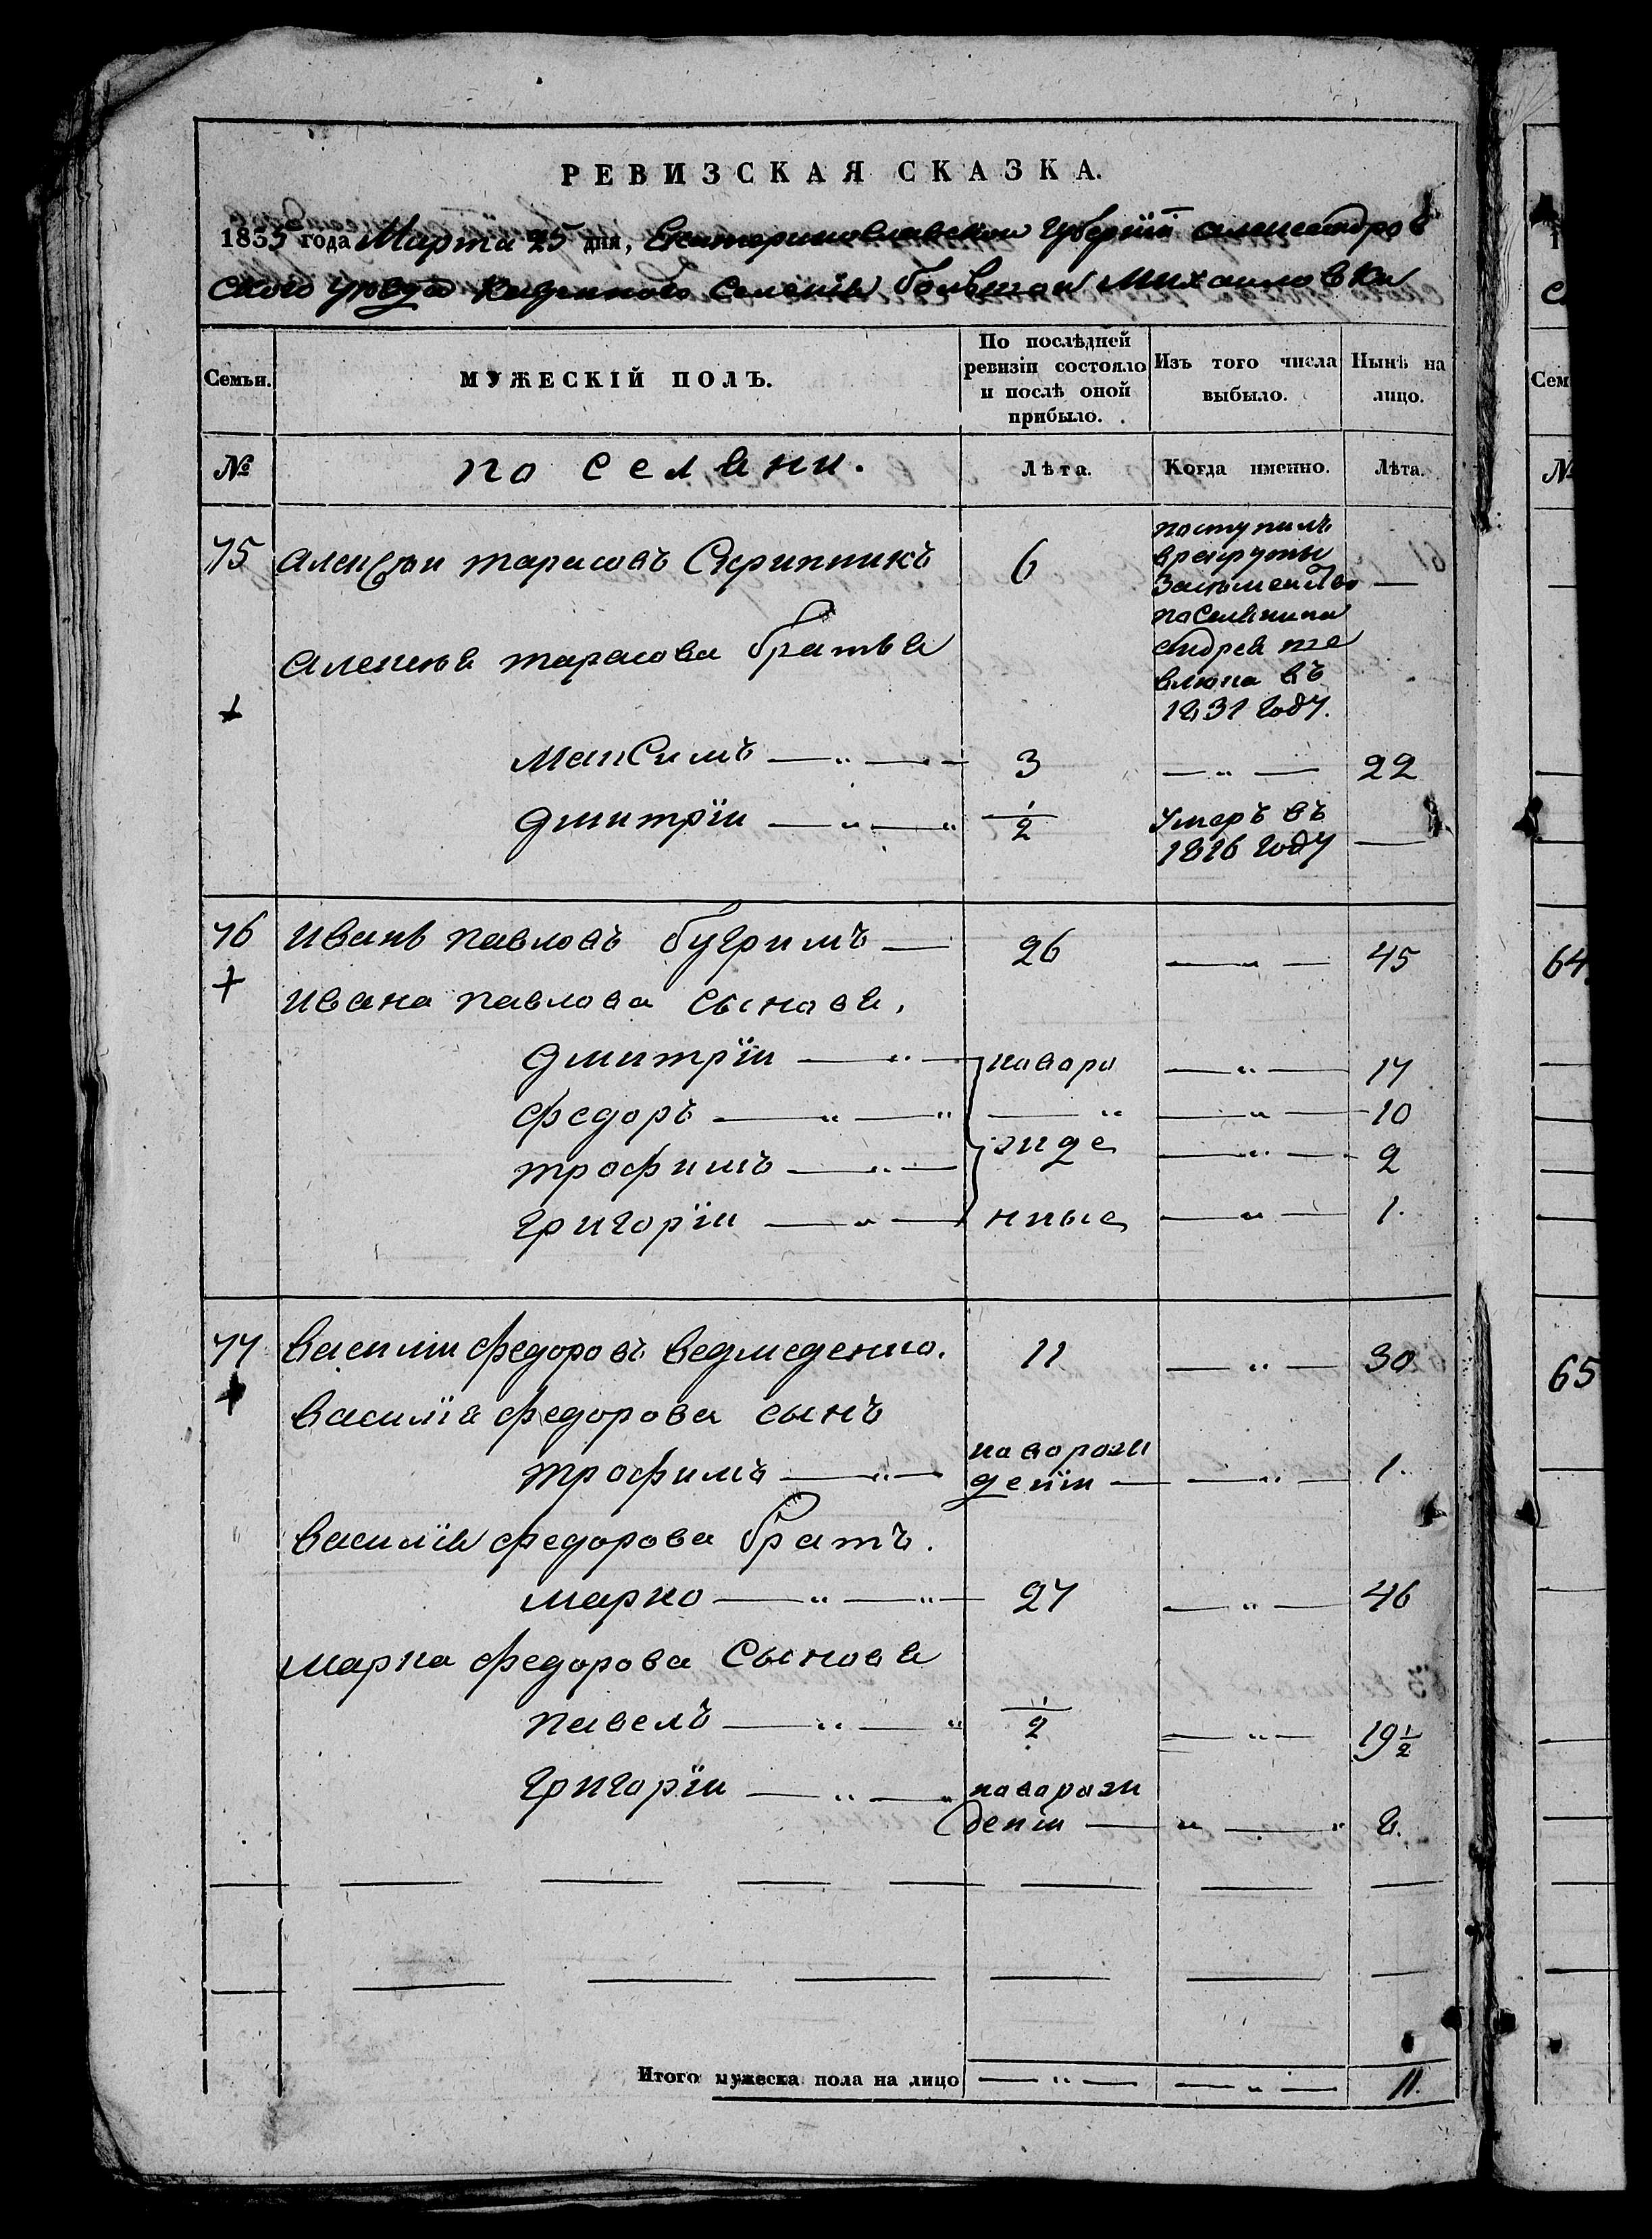 РЕВИЗСКАЯ СКАЗКА.
1835 года Марта 25 дня, Екатеринославской Губернїи александров
ского уѣзда Казенного Селенїя большой Михаиловки
Семьи. МУЖЕСКІЙ ПОЛЪ. По послѣдней ревизіи состояло и послѣ оной прибыло. Изъ того числа выбыло. Нынѣ на лицо.
№ поселяни. Лѣта. Когда именно. Лѣта.
75 алексѣи тарасовъ Скрипникъ 6 поступилъ
в рекруты
за
поселянина
андрея
въ
1831 году. —
алексѣя тарасова братья
+
Максимъ — „ — 3 — „ — 22
дмитрїи — „ — „ 1/2 умеръ въ
1816 году —
76 иванъ павловъ бугримъ — 26 — „ — 45
+
ивана павлова сыновя,
дмитрїи — „ — новоро — „ — 17
федоръ — „ — „ — „ — „ — 10
трофимъ — „ — жде — „ — 2
григорїи — „ — нные — „ — 1.
77 василии федоровъ ведмеденко. 11 — „ — 30
+
василїя федорова сынъ
трофимъ — „ — новорож
денїи — — „ — 1.
василїя федорова братъ.
марко — „ — „ — 27 — „ — 46
марка федорова сыновя
павелъ — „ — „ 1/2 — „ — 19 1/2
григорїи — „ — „ новорож
денїи — „ — „ 8.
Итого мужеска пола на лицо — „ — — „ — 11.
1
с
Сем
№
64
65